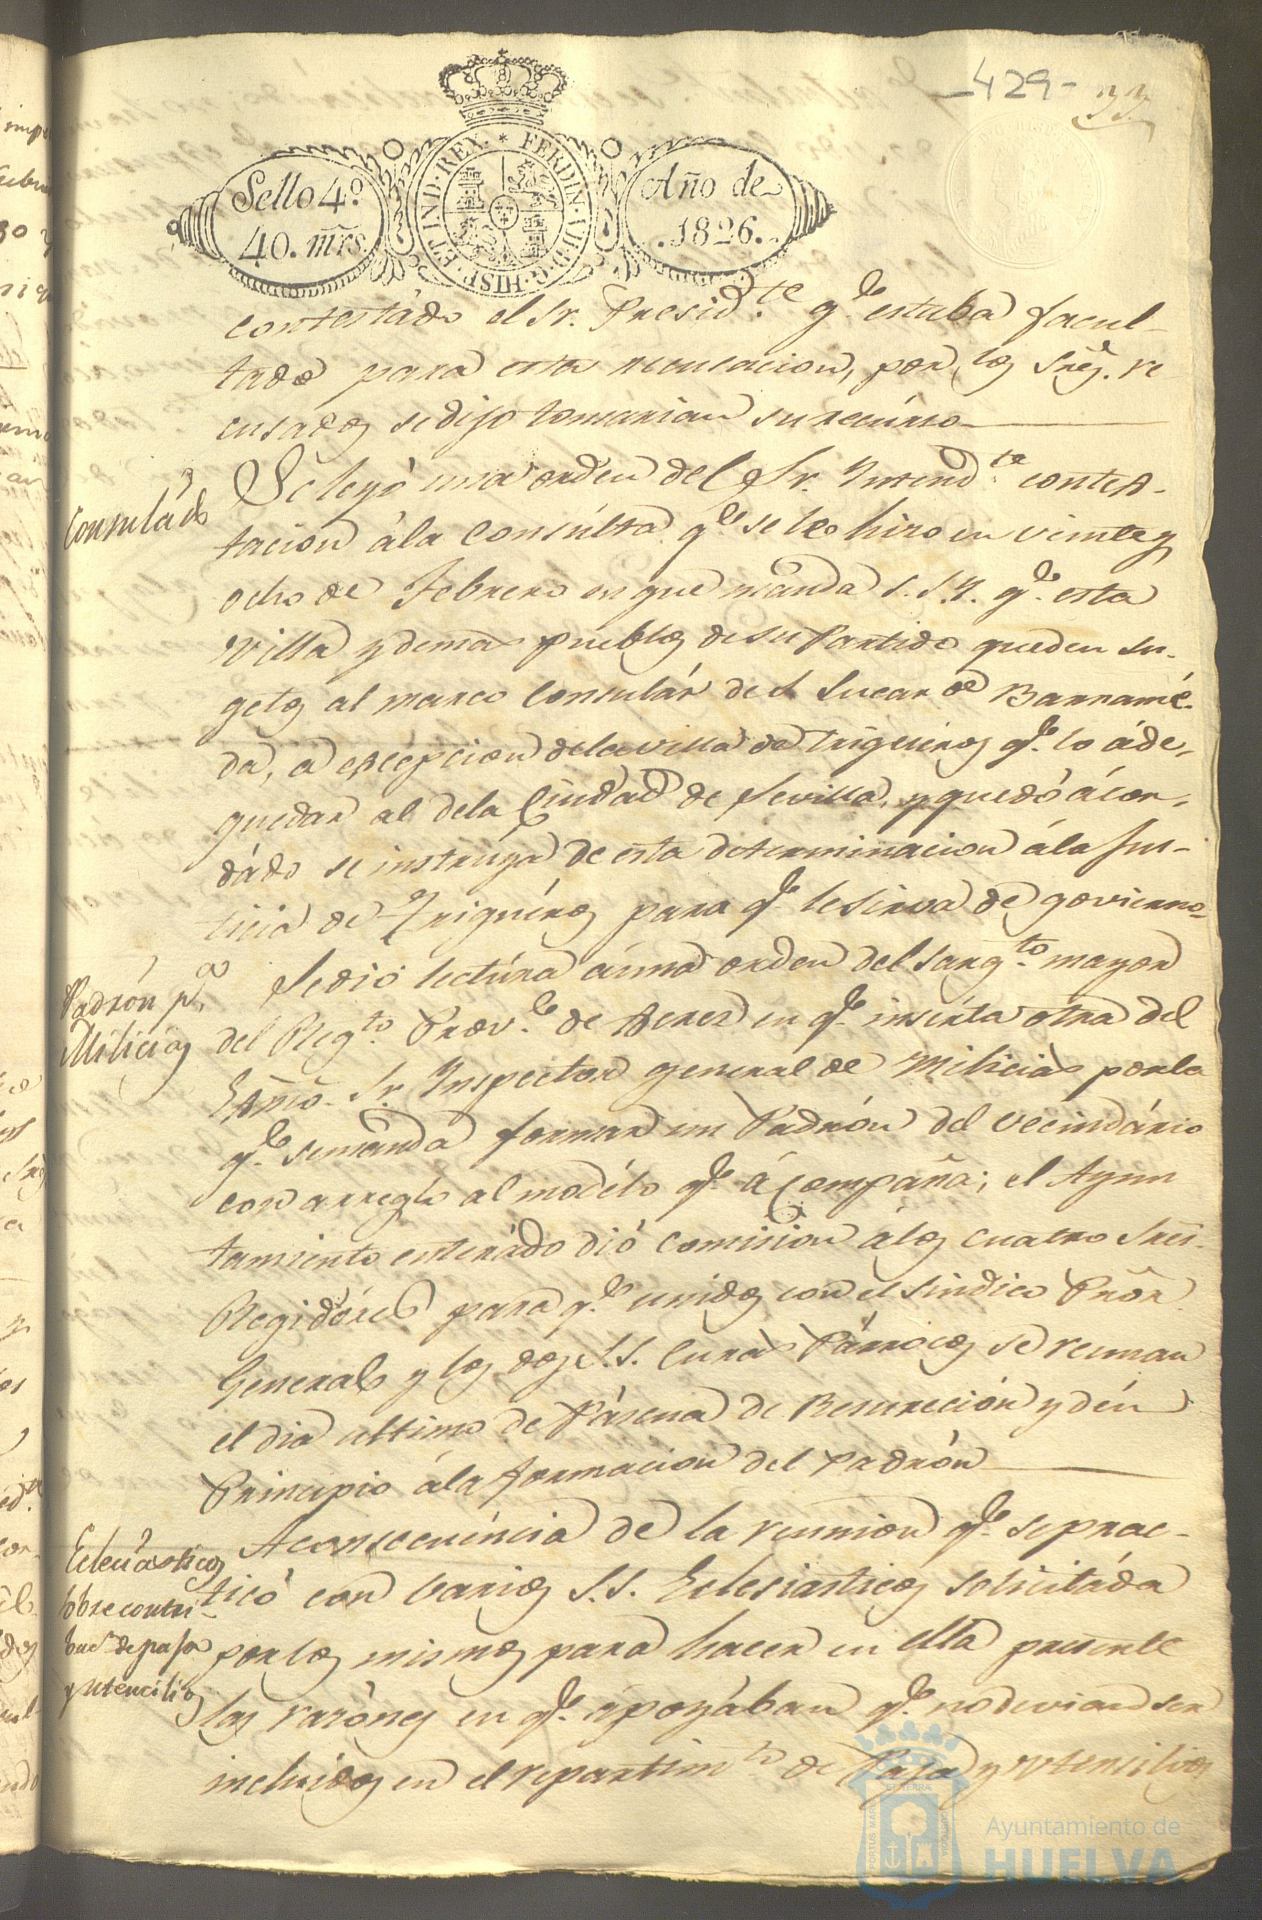 -429-
33
Sello 4º
40. mrs.
HISP. ET IND. REX. * FERDIN. VII. D. G.
Año de
1826.
contestádo el Sr. Presid.te q.e estaba facul-
tado para esta recusacion, por los Sres. re
cusados se dijo tomarian su recúrso
Consuládo
Se leyó una orden del Sr. Intend.te contes-
tacion á la Consúlta q.e se le hizo en veinte y
ocho de Febrero en que manda S.S.Y. q.e esta
Villa y demas pueblos de su Partido queden su-
getos al marco Consulár de S. Lucar de Barramé-
da, á excepcion de la villa de Trigueros q.e lo áde-
quedar al de la Ciudad de Sevilla, y quedó ácor-
dádo se instrúya de esta determinacion á la Jus-
ticia de Triguéros para q.e le sirva de govierno-
Padrón p.a
Milicias
Se dió lectúra á una orden del Sarg.to mayor
del Reg.to Prov.l de Xerez en q.e insérta otra del
Exmo. Sr. Inspector general de Milicias por la
q.e se manda formar un Padrón del vecindário
con arreglo al modélo q.e ácompaña; el Ayun
tamiento enterádo dió comision á los cuatro Sres.
Regidóres para q.e unidos con el Sindico Pror.
General y los dos S.S. Curas Párrocos se reunan
el dia ultimo de Páscua de Resureción y dén
Principio á la formacion del Padrón
Eclesiasticos
sobre contri-
bucs. de paja
y utencilios
A consecuéncia de la reunion q.e se prac-
ticó con barios S.S. Eclesiasticos solicitáda
por los mismos para hacer en ella presente
las razónes en q.e apoyában q.e no devian ser
incluidos en el repartim.to de Paja y utensilios
Ayuntamiento de
HUELVA